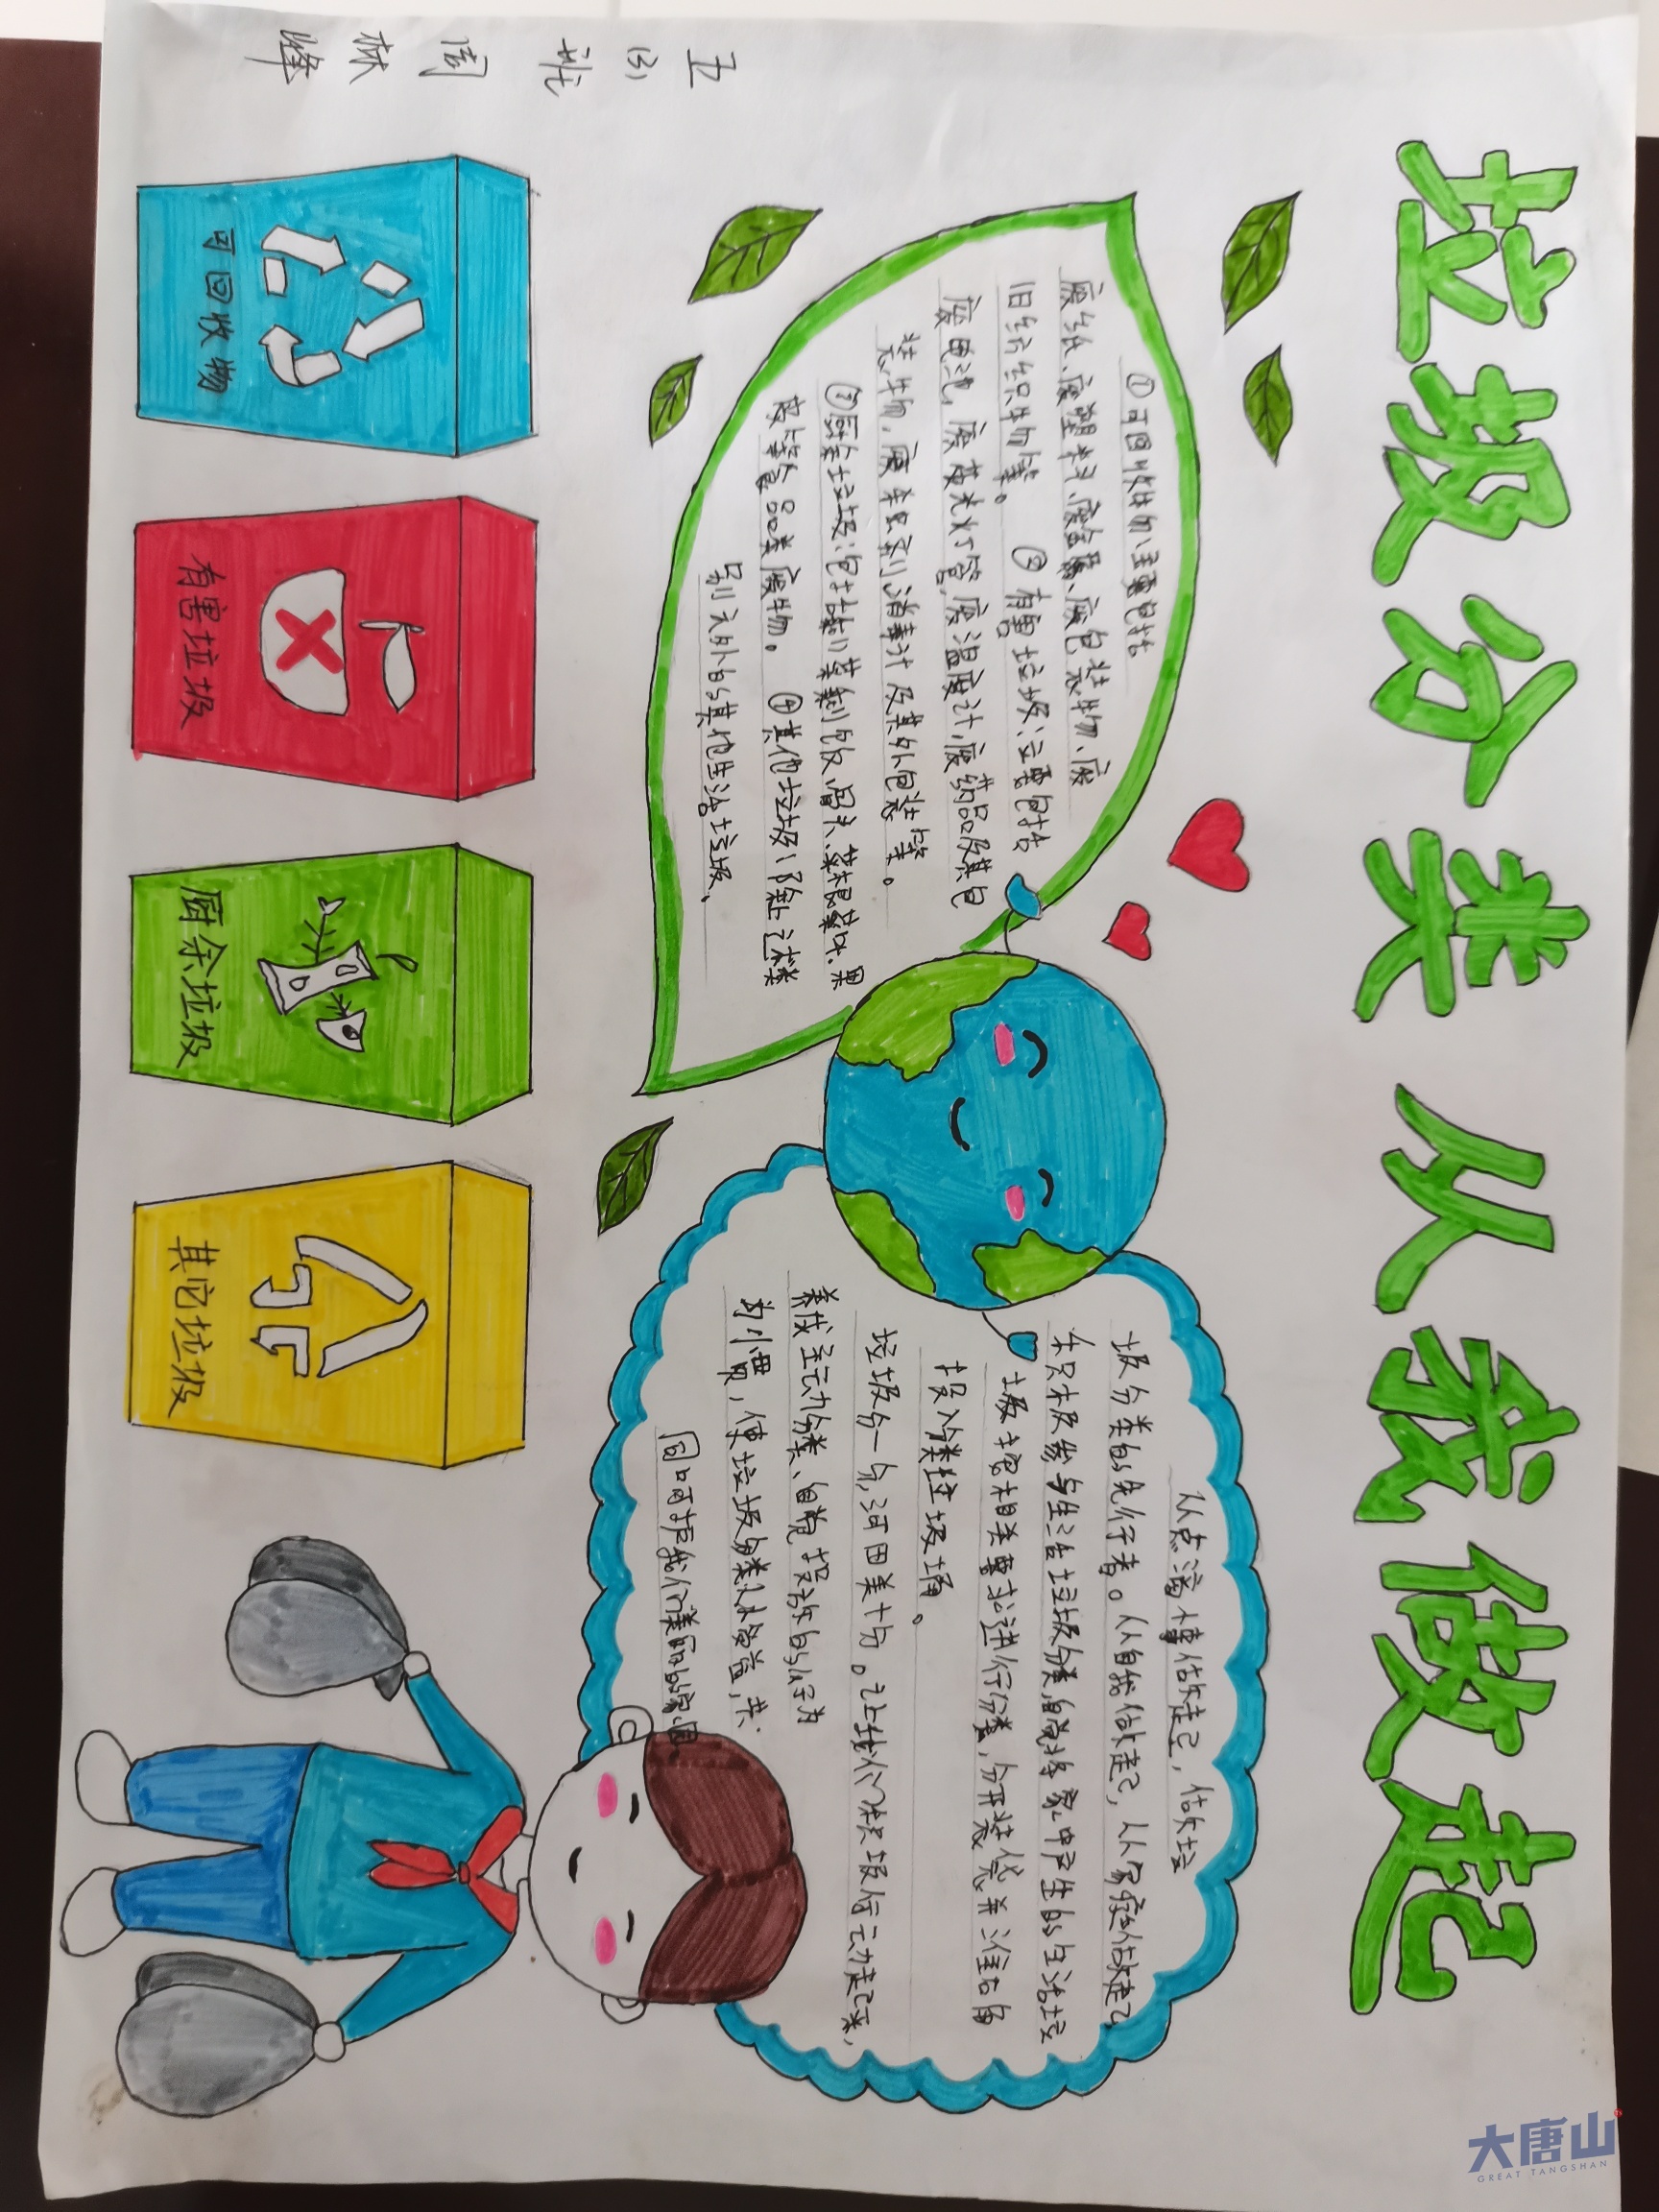 垃圾分类 从我做起
①可回收物:主要包括
废纸、废塑料、废金属、废包装物、废
旧纺织物等。 ②有害垃圾:主要包括
废电池,废荧光灯管,废温度计,废药品及其包
装物,废杀虫剂消毒汁及其外包装等。
③厨余垃圾:包括剩菜剩饭,骨头、菜根菜叶、果
皮等食品类废物。 ④其他垃圾:除上述类
别之外的其他生活垃圾、
从点滴事做起,做垃
圾分类的先行者。从自我做起,从家庭做起
积极参与生活垃圾分类,自觉将家中产生的生活垃
圾按相关要求进行分类,分开装袋并准确
投入分类垃圾桶。
垃圾分一分,河田美十分。让我们快快行动起来,
养成主动分类、自觉投放的行为
为习惯,使垃圾分类从备益,共
同呵护我们美丽的家园
可回收物
有害垃圾
厨余垃圾
其它垃圾
五(3)班 周林峰
大唐山
GREAT TANGSHAN